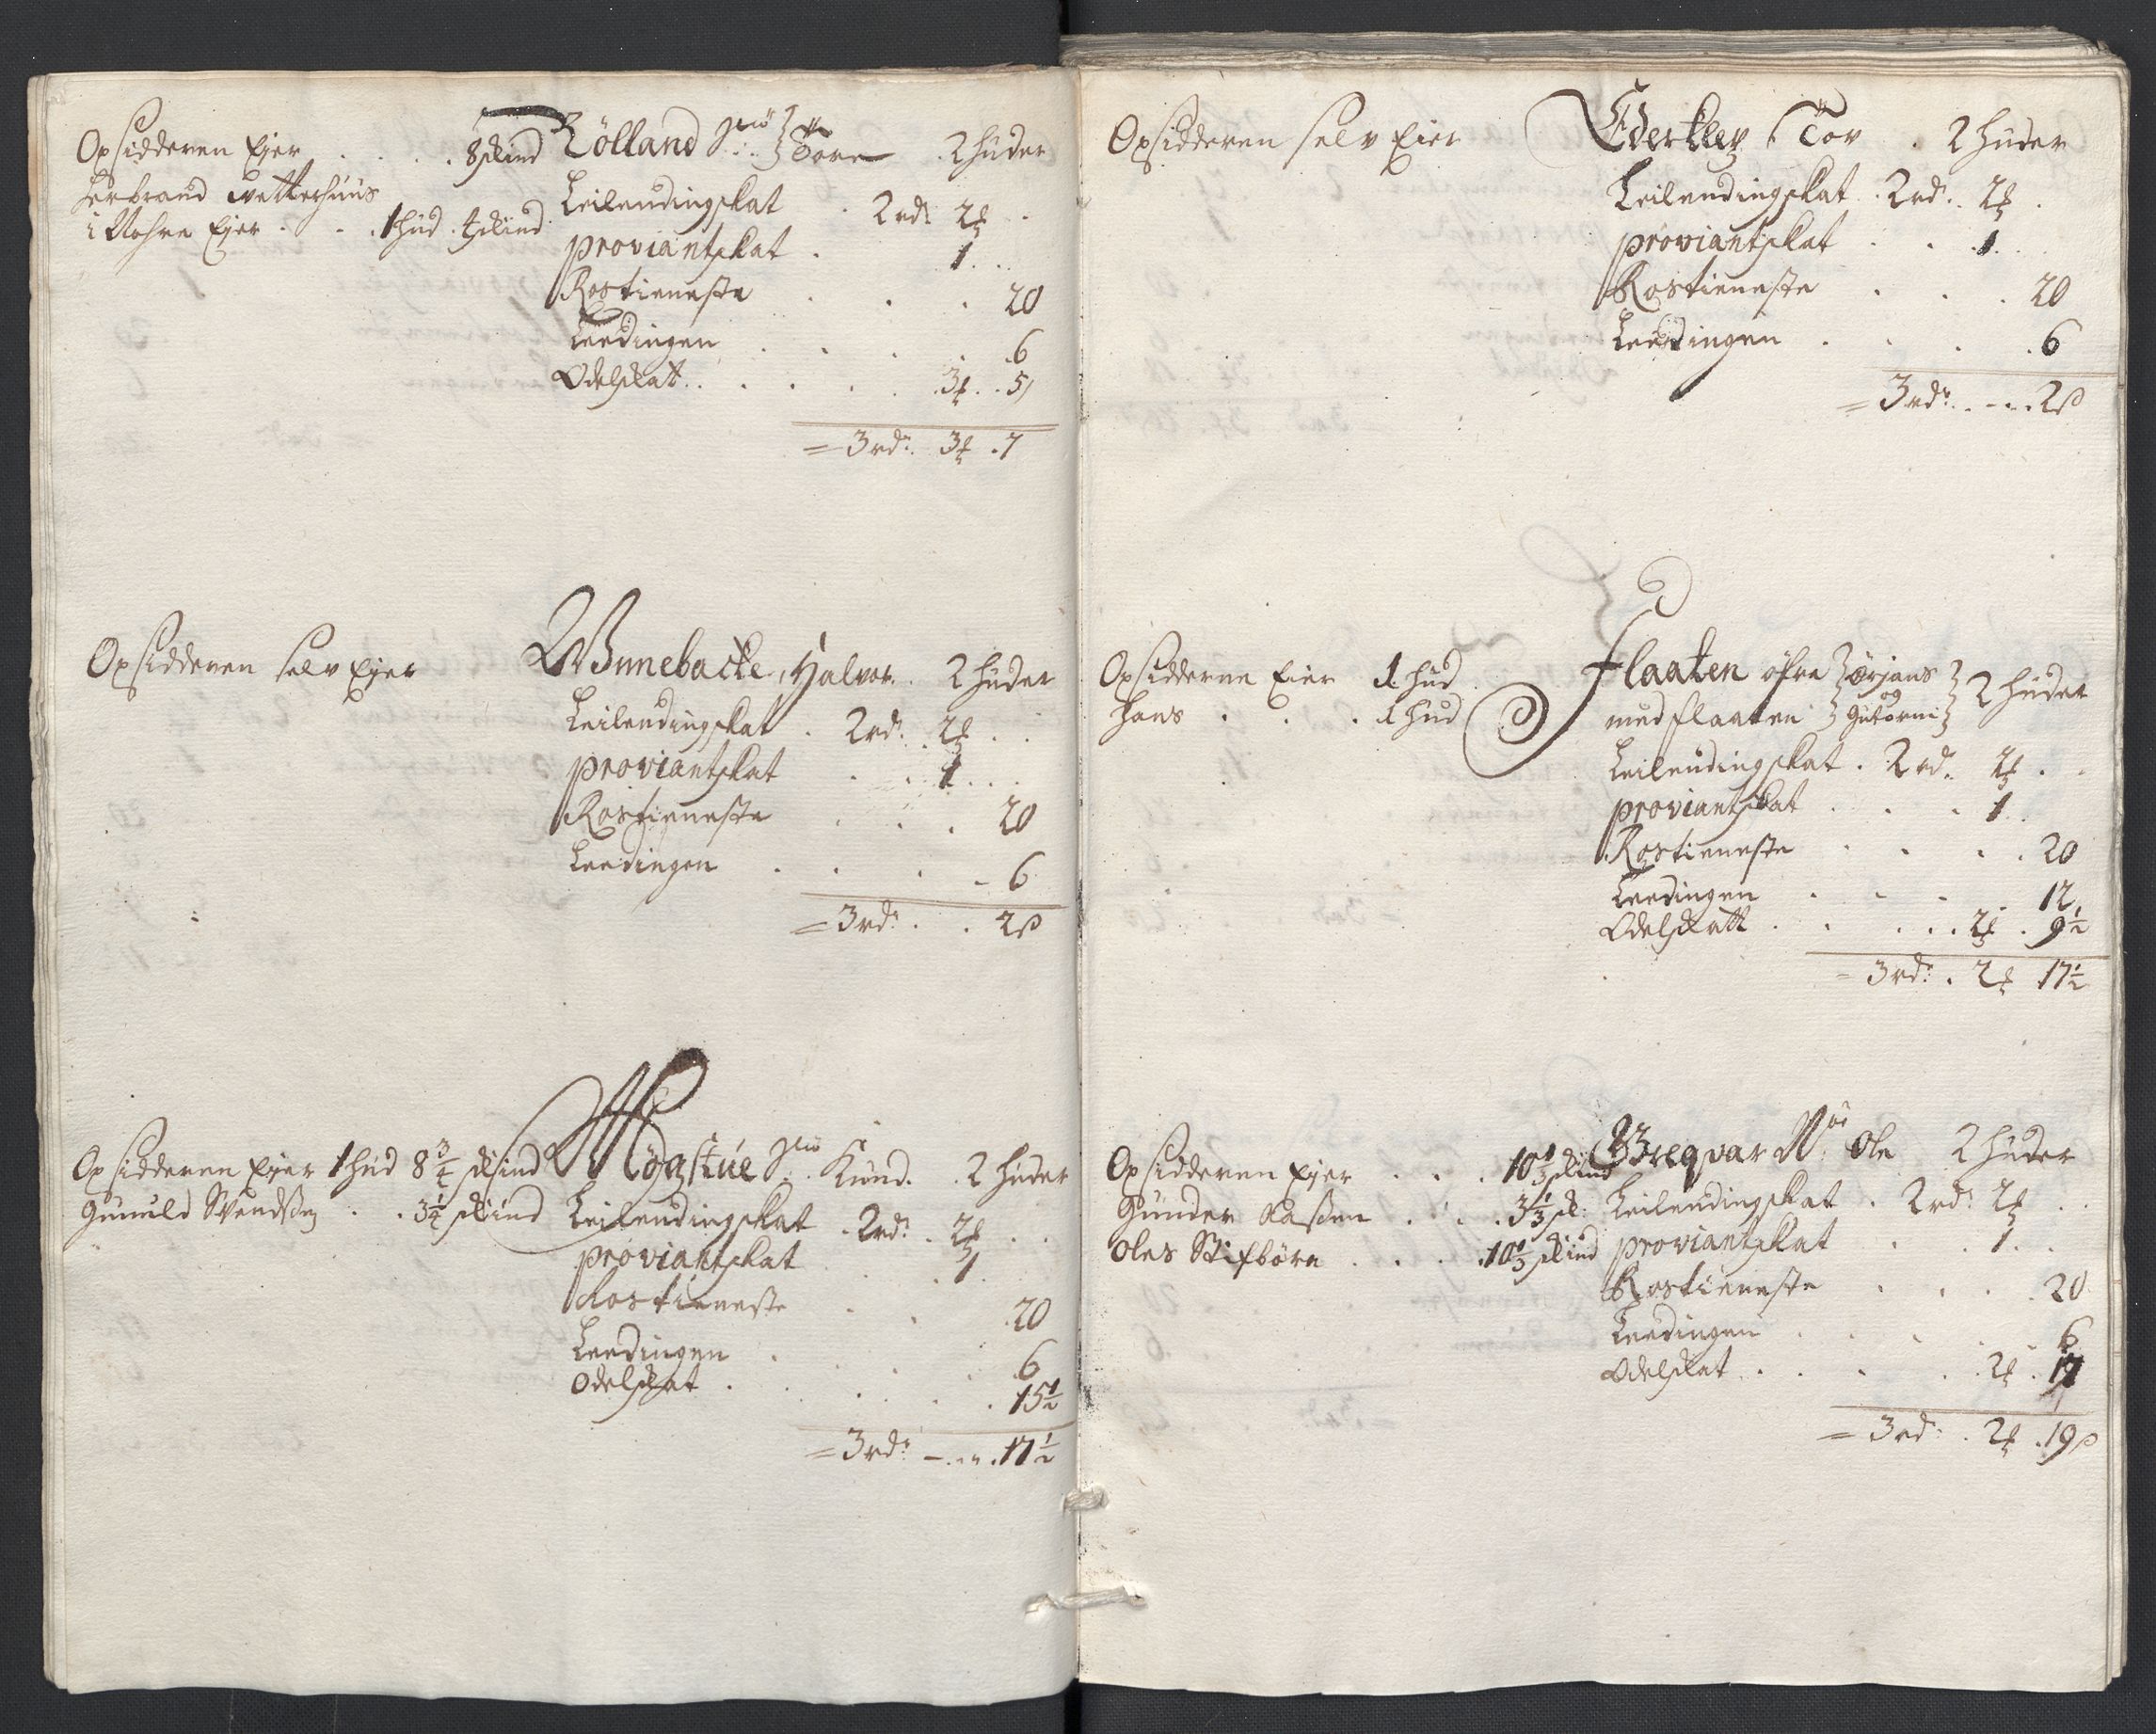 Opsidderen Ejer . . . . 8 skind
Herbrand
i Nohre Ejer . . . 1 hud . 4 skind
Rölland Tore . 2 hüder
Leilendingskat . 2 rdr 2 ort .
proviantskat . 1 . .
Rostieneste . . . 20
Leedingen . . . . 6
Odelskat . . . . . 3 ort . . 5
= 3 rdr. 3 ort . 7
Opsidderen selv Ejer
Bunebacke, Halvor . 2 hüder
Leilendingskat . 2 rdr. . 2 ort . .
proviantskat . . 1 . .
Rostieneste . . . 20
Leedingen . . . - 6
= 3 rdr . . 2 ß
Opsidderen Ejer 1 hud 8 3/4 skind
Gunuld Svendsen . . 3 1/4 skind
Högstüe Knud . . 2 hüder
Leilendingskat . 2 rdr. . 2 ort . .
proviantskat . . 1 .
Rostieneste . . 20
Leedingen . . . . 6
Odelskat . . . . . 15 1/2
= 3 rdr - . . . 17 1/2
Opsidderen selv Eier
Ederklev, Tov . 2 hüder
Leilendingskat . 2 rdr. . 2 ort .
proviantskat . . . 1 .
Rostieneste . . . 20
Leedingen . . . . 6
= 3 rdr. . - . . 2 ß
Opsidderne Eier 1 hud
Hans . . . 1 hud
Flaaten öfre örjans
med flaaten og Gutorm 2 hüder
Leilendingskat . 2 rd. 2 ort . .
proviantskat . . . 1 .
Rostieneste . . . . 20
Leedingen . . . . 12
Odelskatt . . . . . 2 ort . 9 1/2
= 3 rdr. . 2 ort 17 1/2
Opsidderen Ejer . . . 10 1/3 skind
Günder Aassen . . . . 3 1/3 sk:
Oles Stifbörn . . . . 10 1/3 skind
Bregvar Ole 2 hüder
Leilendingskat . 2 rdr 2 ort . .
proviantskat . . 1 . .
Rostieneste . . . . 20
Leedingen . . . . 6
Odelskat . . . . . 2 ort . 17
= 3 rd: . 2 ort . 19 ß